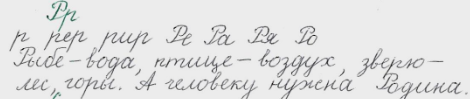 Рр
р рер рир Ре Ра Ря Ро
Рыбе – вода, птице – воздух, зверю –
лес, горы. А человеку нужна Родина.